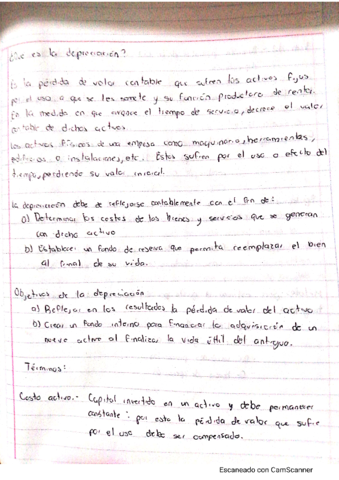 ¿Que es la depreciación?
Es la pérdida de valor contable que sufren los activos fijos
por el uso a que se les somete y su función productora de renta.
En la medida en que avance el tiempo de servicio, decrece el valor
contable de dichos activos.
Los activos físicos de una empresa como maquinaria, herramientas,
edificios o instalaciones, etc. Estos sufren por el uso o efecto del
tiempo, perdiendo su valor inicial.
La depreciación debe de reflejarse contablemente con el fin de:
a) Determinar los costos de los bienes y servicios que se generan
con dicho activo
b) Establecer un fondo de reserva que permita reemplazar el bien
al final de su vida.
Objetivos de la depreciación
a) Reflejar en los resultados la pérdida de valor del activo
b) Crear un fondo interno para financiar la adquisición de un
nuevo activo al finalizar la vida útil del antiguo.
Términos:
Costo activo.- Capital invertido en un activo y debe permanecer
constante: por esto la pérdida de valor que sufre
por el uso debe ser compensado.
Escaneado con CamScanner